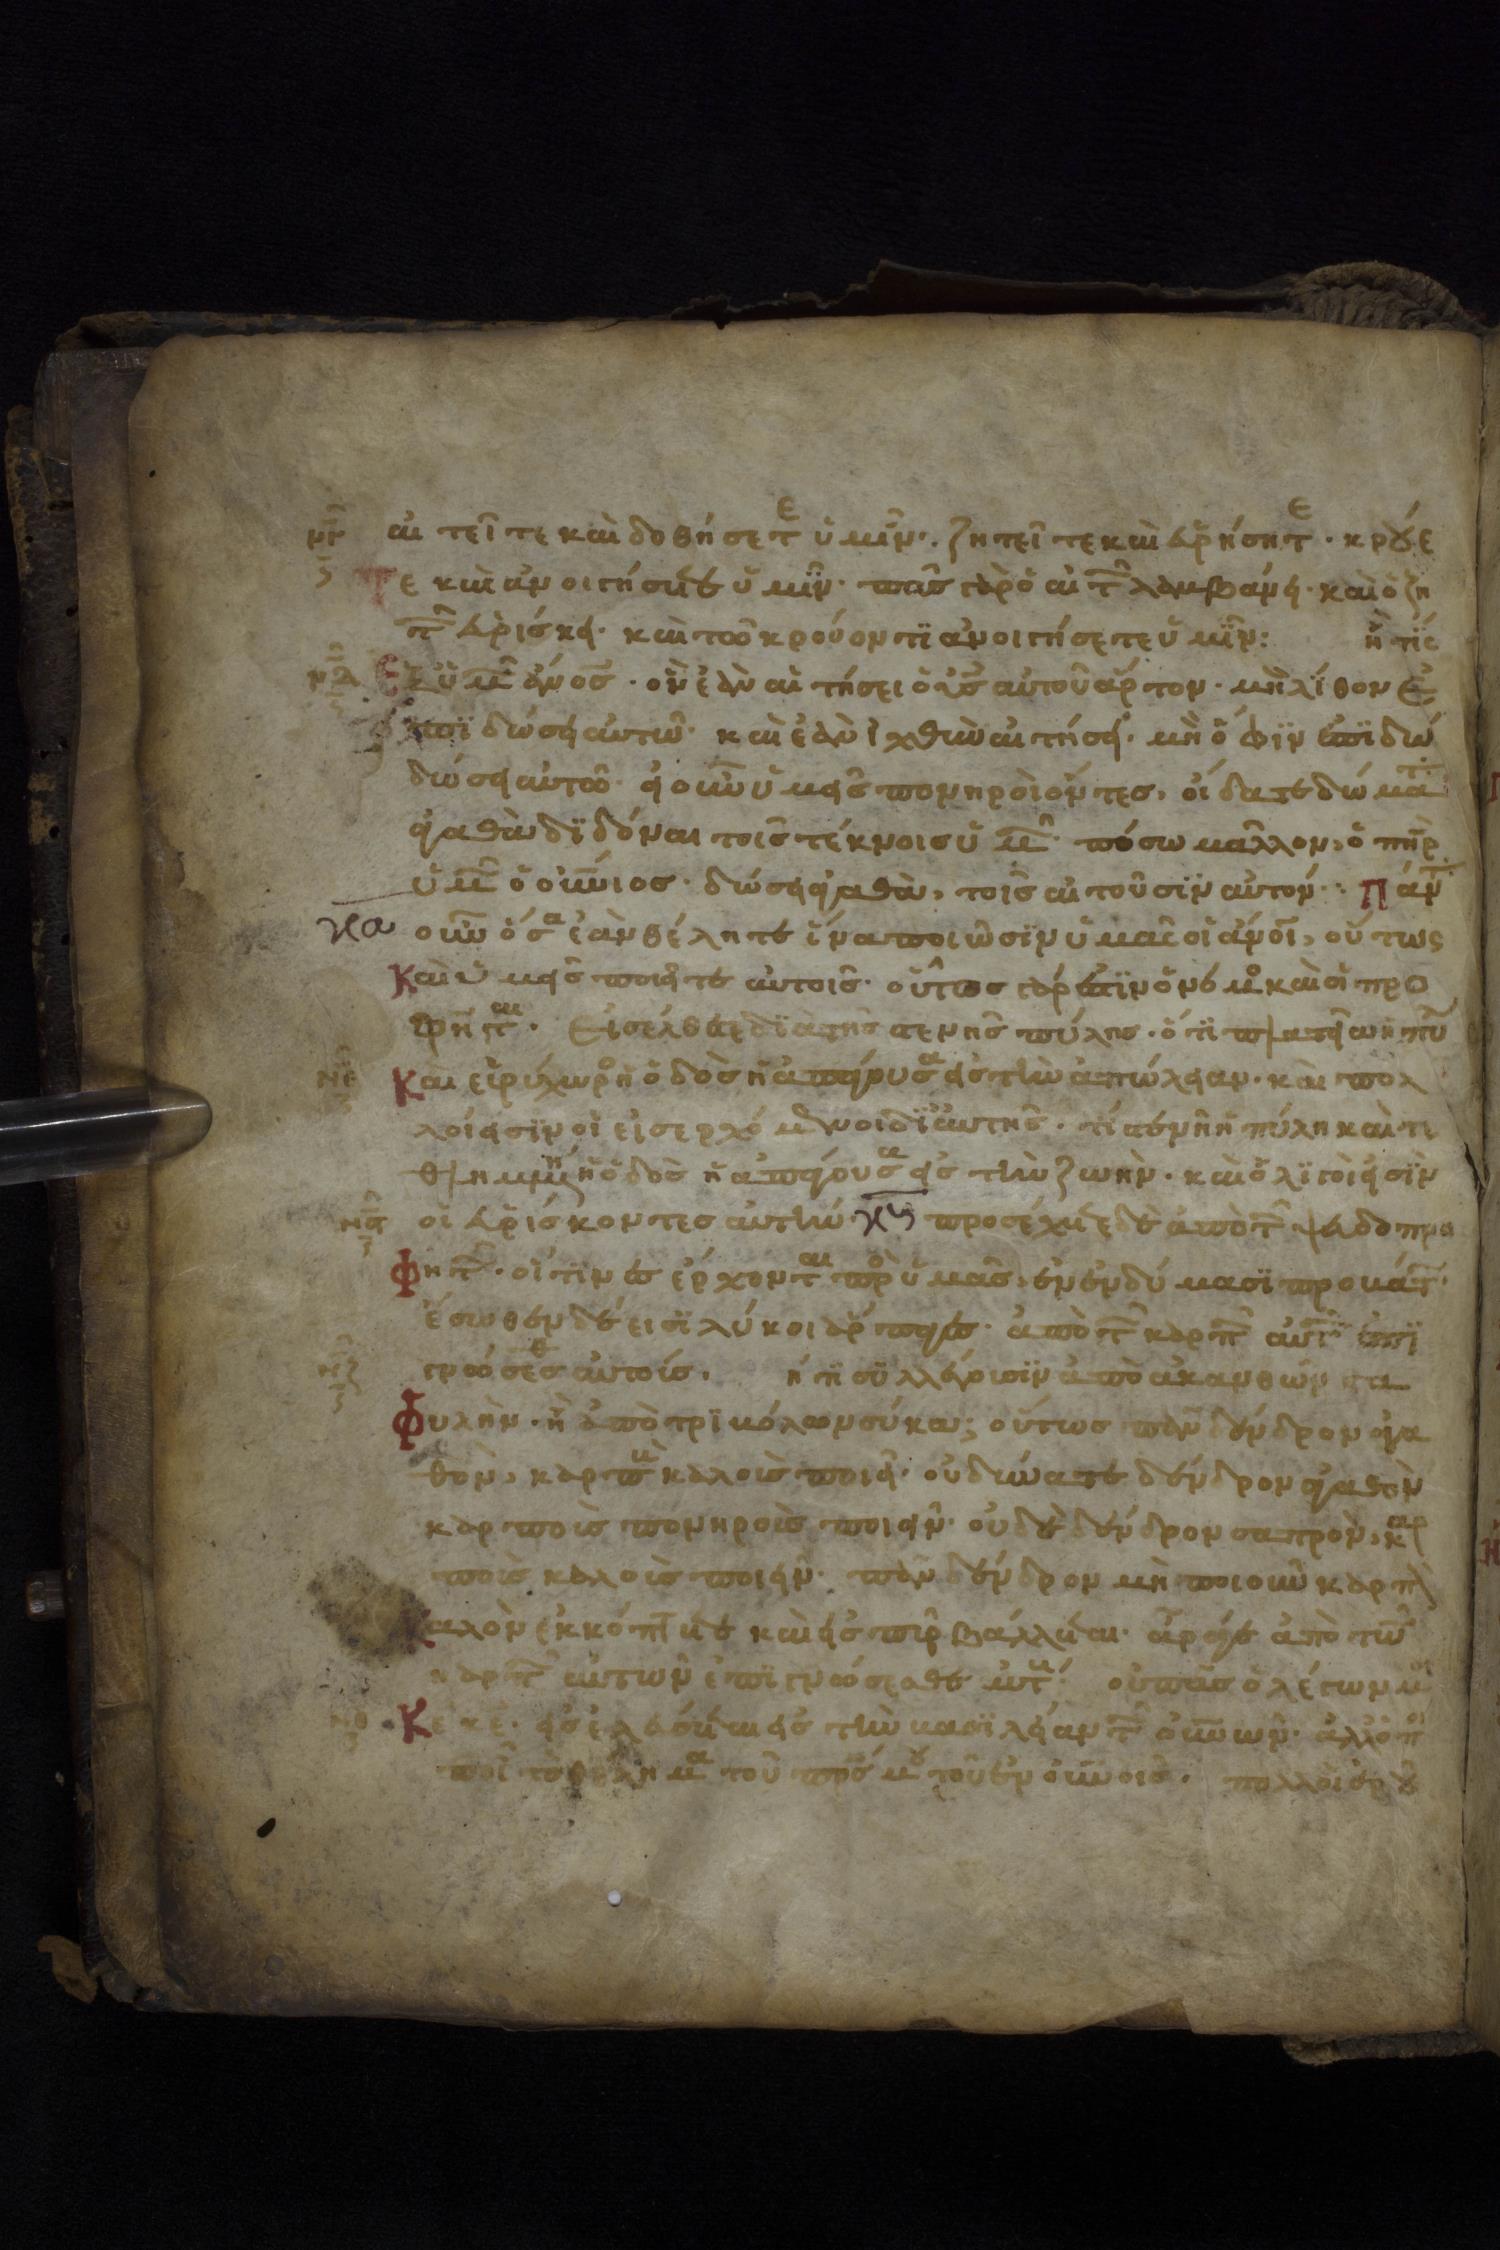 αἰτεῖτε καὶ δοθήσετ ὑμῖν· ζητεῖτε καὶ εὑρήσητ · κρούε
τε καὶ ἀνοιγήσετε ὑμῖν· πᾶς γὰρ ὁ αἰτ λαμβάνει· καὶ ὁ ζη
τ εὑρίσκει· καὶ τῶ κρούοντι ἀνοιγήσετε ὑμῖν: ἢ τίς
ἐξ ὑμ ἄνος · ὃν ἐὰν αἰτήσει ὁ υἱς αὐτοῦ ἄρτον· μὴ λίθον ἐ
πιδώσει αὐτῶ· καὶ ἐὰν ἰχθὺν αἰτήσει· μὴ ὄφιν ἐπιδώ
δώσει αὐτῶ· εἰ οὖν ὑμεῖς πονηροὶ ὄντες, οἴδατε δόματ
ἀγαθὰ διδόναι τοῖς τέκνοις ὑμ· πόσω μᾶλλον, ὁ πηρ
ὑμ ὁ οὐνιος· δώσει ἀγαθὰ, τοῖς αἰτοῦσιν αὐτόν· Πάντ
κα οὖν ὅσα ἐὰν θέλητε ἵνα ποιῶσιν ὑμᾶς οἱ ἄνοι, οὕτως
Καὶ ὑμεῖς ποιεῖτε αὐτοῖς· οὗτος γάρ ἐστιν ὁ νόμος καὶ οἱ προ
φῆται· Εἰσέλθετε διὰ τῆς στενῆς πύλης· ὅτι πλατεῖα ἡ πύ
Καὶ εὐρίχωρος ἡ ὁδὸς ἡ ἀπάγουσα εἰς τὴν ἀπώλειαν· καὶ πολ
λοί εἰσιν οἱ εἰσερχόμενοι δι αὐτῆς· τί στενὴ ἡ πύλη καὶ τε
θλημμένη ἡ ὁδὸς ἡ ἀπάγουσα εἰς τὴν ζωὴν· καὶ ὀλίγοι εἰσὶν
οἱ εὑρίσκοντες αὐτὴν κς προσέχετε δὲ ἀπὸ τ ψευδοπρο
Φητ· οἵτινες ἔρχονται πρὸ ὑμᾶς, ἐν ἐνδύμασι προβάτ·
ἔσωθεν δέ εἰσι λύκοι ἅρπαγες· ἀπὸ τ καρπ αὐτ ἐπι
γνώσεσθ αὐτούς. ἤτι συλλέγουσιν ἀπὸ ἀκανθῶν στα
Φυλὴν· ἢ ἀπὸ τριβόλων σύκα; οὕτως πᾶν δένδρον ἀγα
θὸν, καρποὺς καλοὺς ποιεῖ· οὐ δύνατε δένδρον ἀγαθὸν
καρποὺς πονηροὺς ποιεῖν· οὐδὲ δένδρον σαπρὸν, καρ
ποὺς καλοὺς ποιεῖν· πᾶν δένδρον μὴ ποιοῦν καρπὸν
Καλὸν ἐκκόπτετε καὶ εἰς πῦρ βάλλεται· ἄραγε ἀπὸ τῶν
καρπ αὐτῶν ἐπιγνώσεσθε αὐτ· οὐ πᾶς ὁ λέγων μοι
Κε κε· εἰσελεύσεται εἰς τὴν βασιλείαν τ οὐνῶν· ἀλλ ὁ
ποι τὸ θέλημα τοῦ πρς μου τοῦ ἐν οὐνοῖς· πολλοὶ ἐροῦ